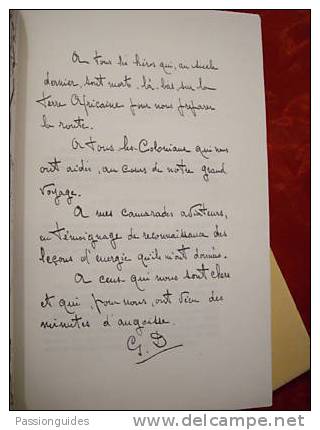 A tous les héros qui, au siècle
dernier, sont morts, là-bas, sur la
terre Africaine pour nous préparer
la route.
A tous les Coloniaux qui nous
ont aidés, au cours de notre grand
Voyage.
A mes camarades aviateurs,
en témoignage de reconnaissance des
leçons d'énergie qu'ils m'ont données.
A ceux qui nous sont chers
et qui, pour nous, ont vécu des
minutes d'angoisse.
G. D
Passionguides
www.delcampe.net